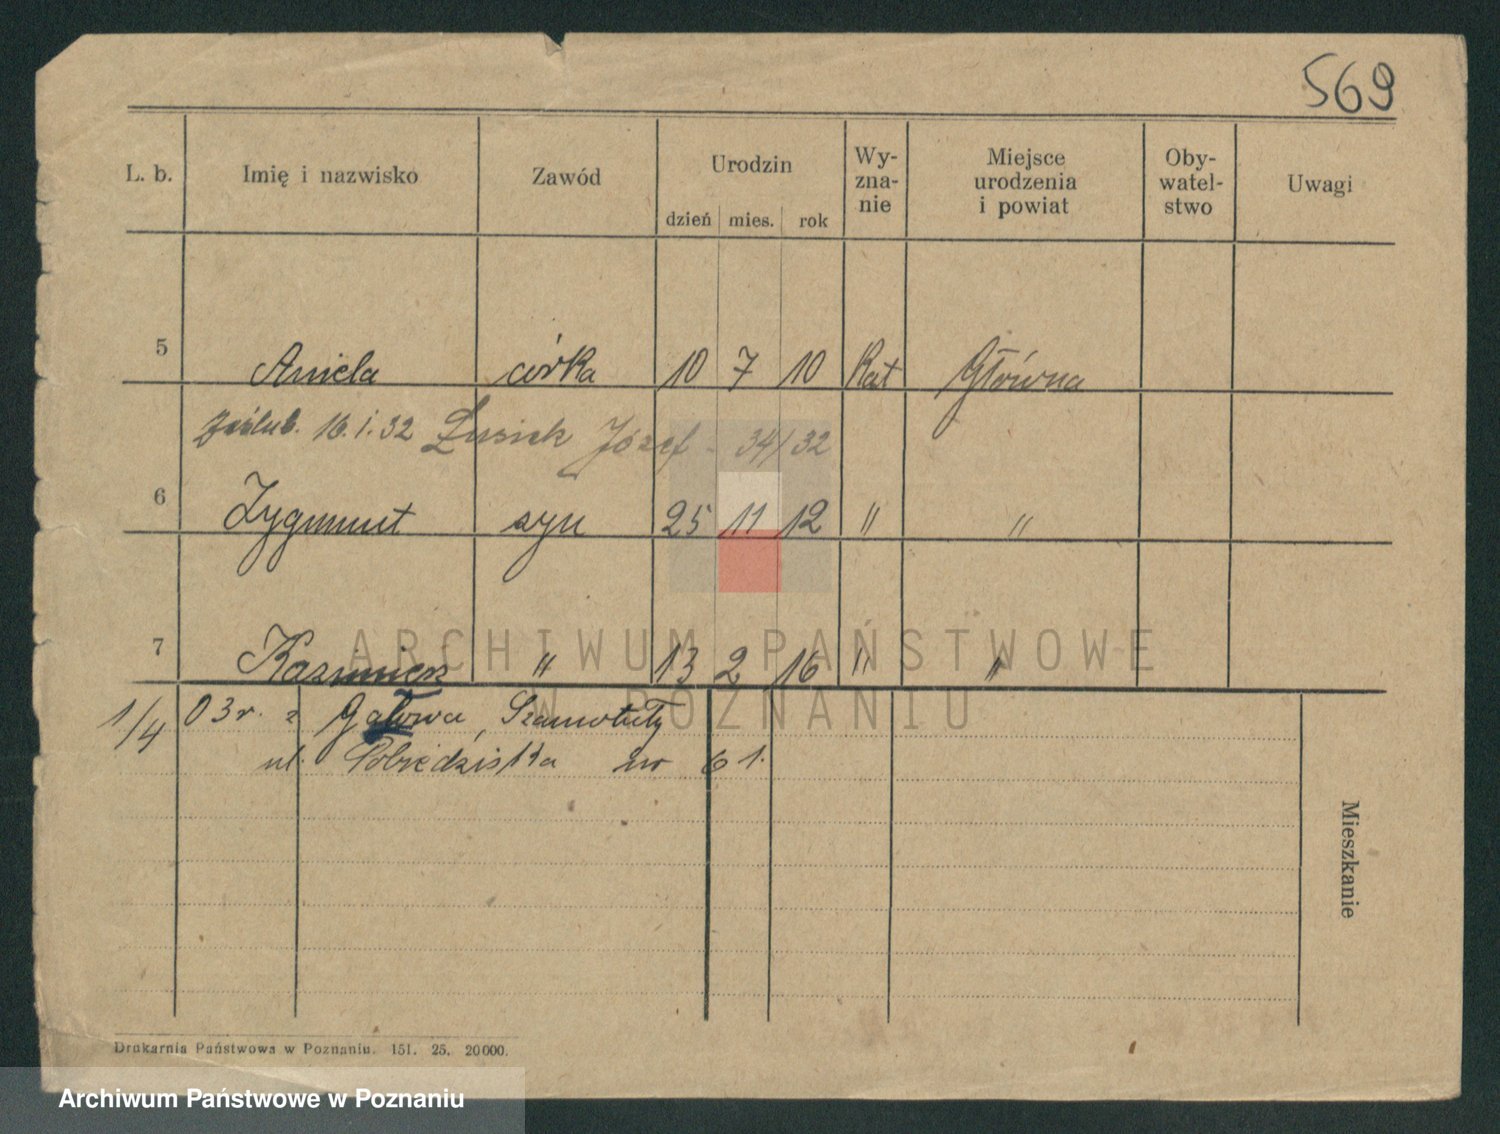 569
L. b. Imię i nazwisko Zawód Urodzin Wy-zna-nie Miejsce urodzenia i powiat Oby-watel-stwo Uwagi
dzień mies. rok
5 Aniela córka 10 7 10 Kat Główna
zaślub. 16.1.32 Łusiek Józef - 34/32
6 Zygmunt syn 25 11 12 " "
7 Kazimierz " 13 2 16 " "
ARCHIWUM PAŃSTWOWE
W POZNANIU
1/4 03 r. z Szamotuły
ul. Pobiedziska nr 61.
Mieszkanie
Drukarnia Państwowa w Poznaniu. 151. 25. 20000.
Archiwum Państwowe w Poznaniu